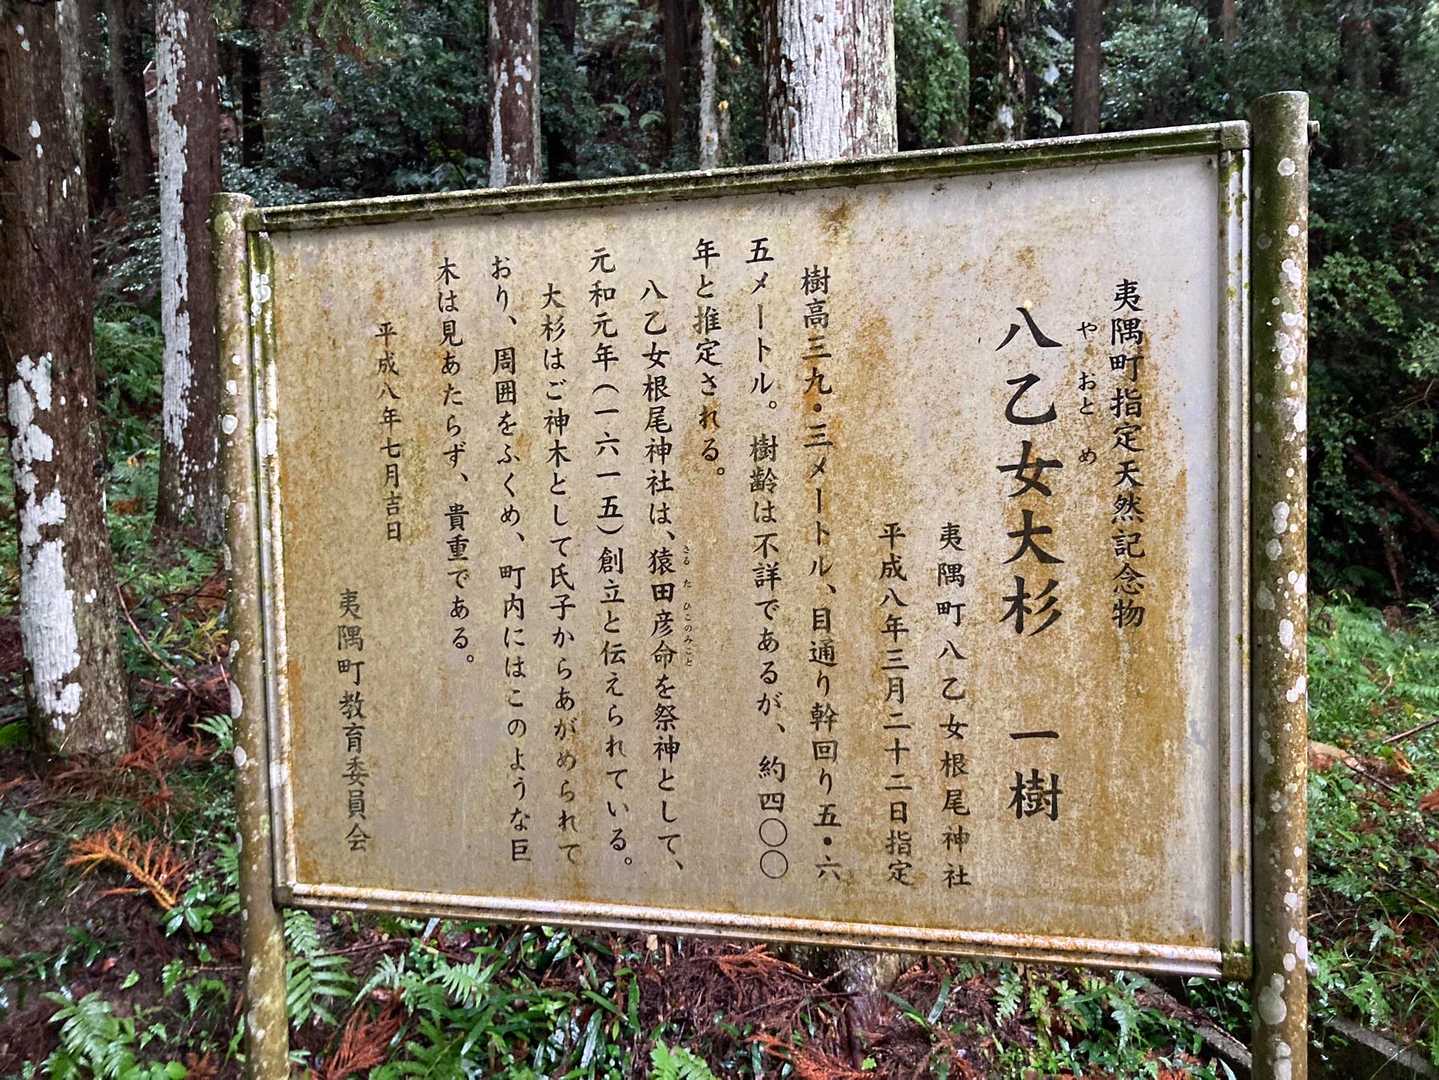 夷隅町指定天然記念物
やおとめ
八乙女大杉 一樹
夷隅町八乙女根尾神社
平成八年三月二十二日指定
樹高三九・三メートル、目通り幹回り五・六
五メートル。樹齢は不詳であるが、約四〇〇
年と推定される。
さるたひこのみこと
八乙女根尾神社は、猿田彦命を祭神として、
元和元年(一六一五)創立と伝えられている。
大杉はご神木として氏子からあがめられて
おり、周囲をふくめ、町内にはこのような巨
木は見あたらず、貴重である。
平成八年七月吉日
夷隅町教育委員会